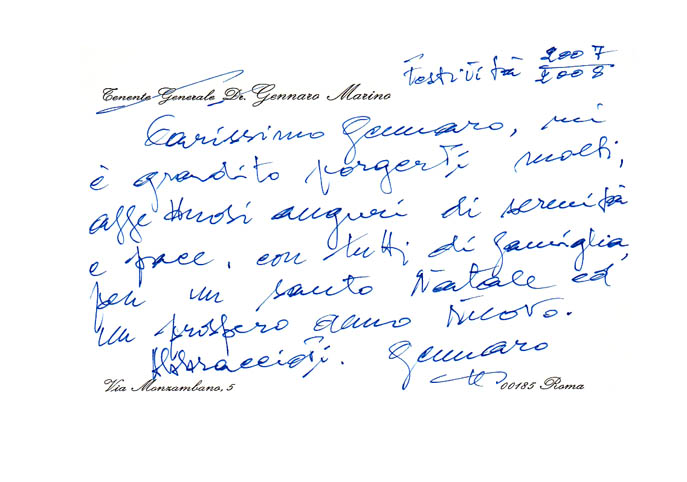 Festività 2007
2008
Tenente Generale Dr. Gennaro Marino
Carissimo Gennaro, mi
è gradito porgerti molti,
affettuosi auguri di serenità
e pace, con tutti di famiglia,
per un santo Natale ed
un prospero anno Nuovo.
Abbraccioti. Gennaro
Via Monzambano, 5
00185 Roma